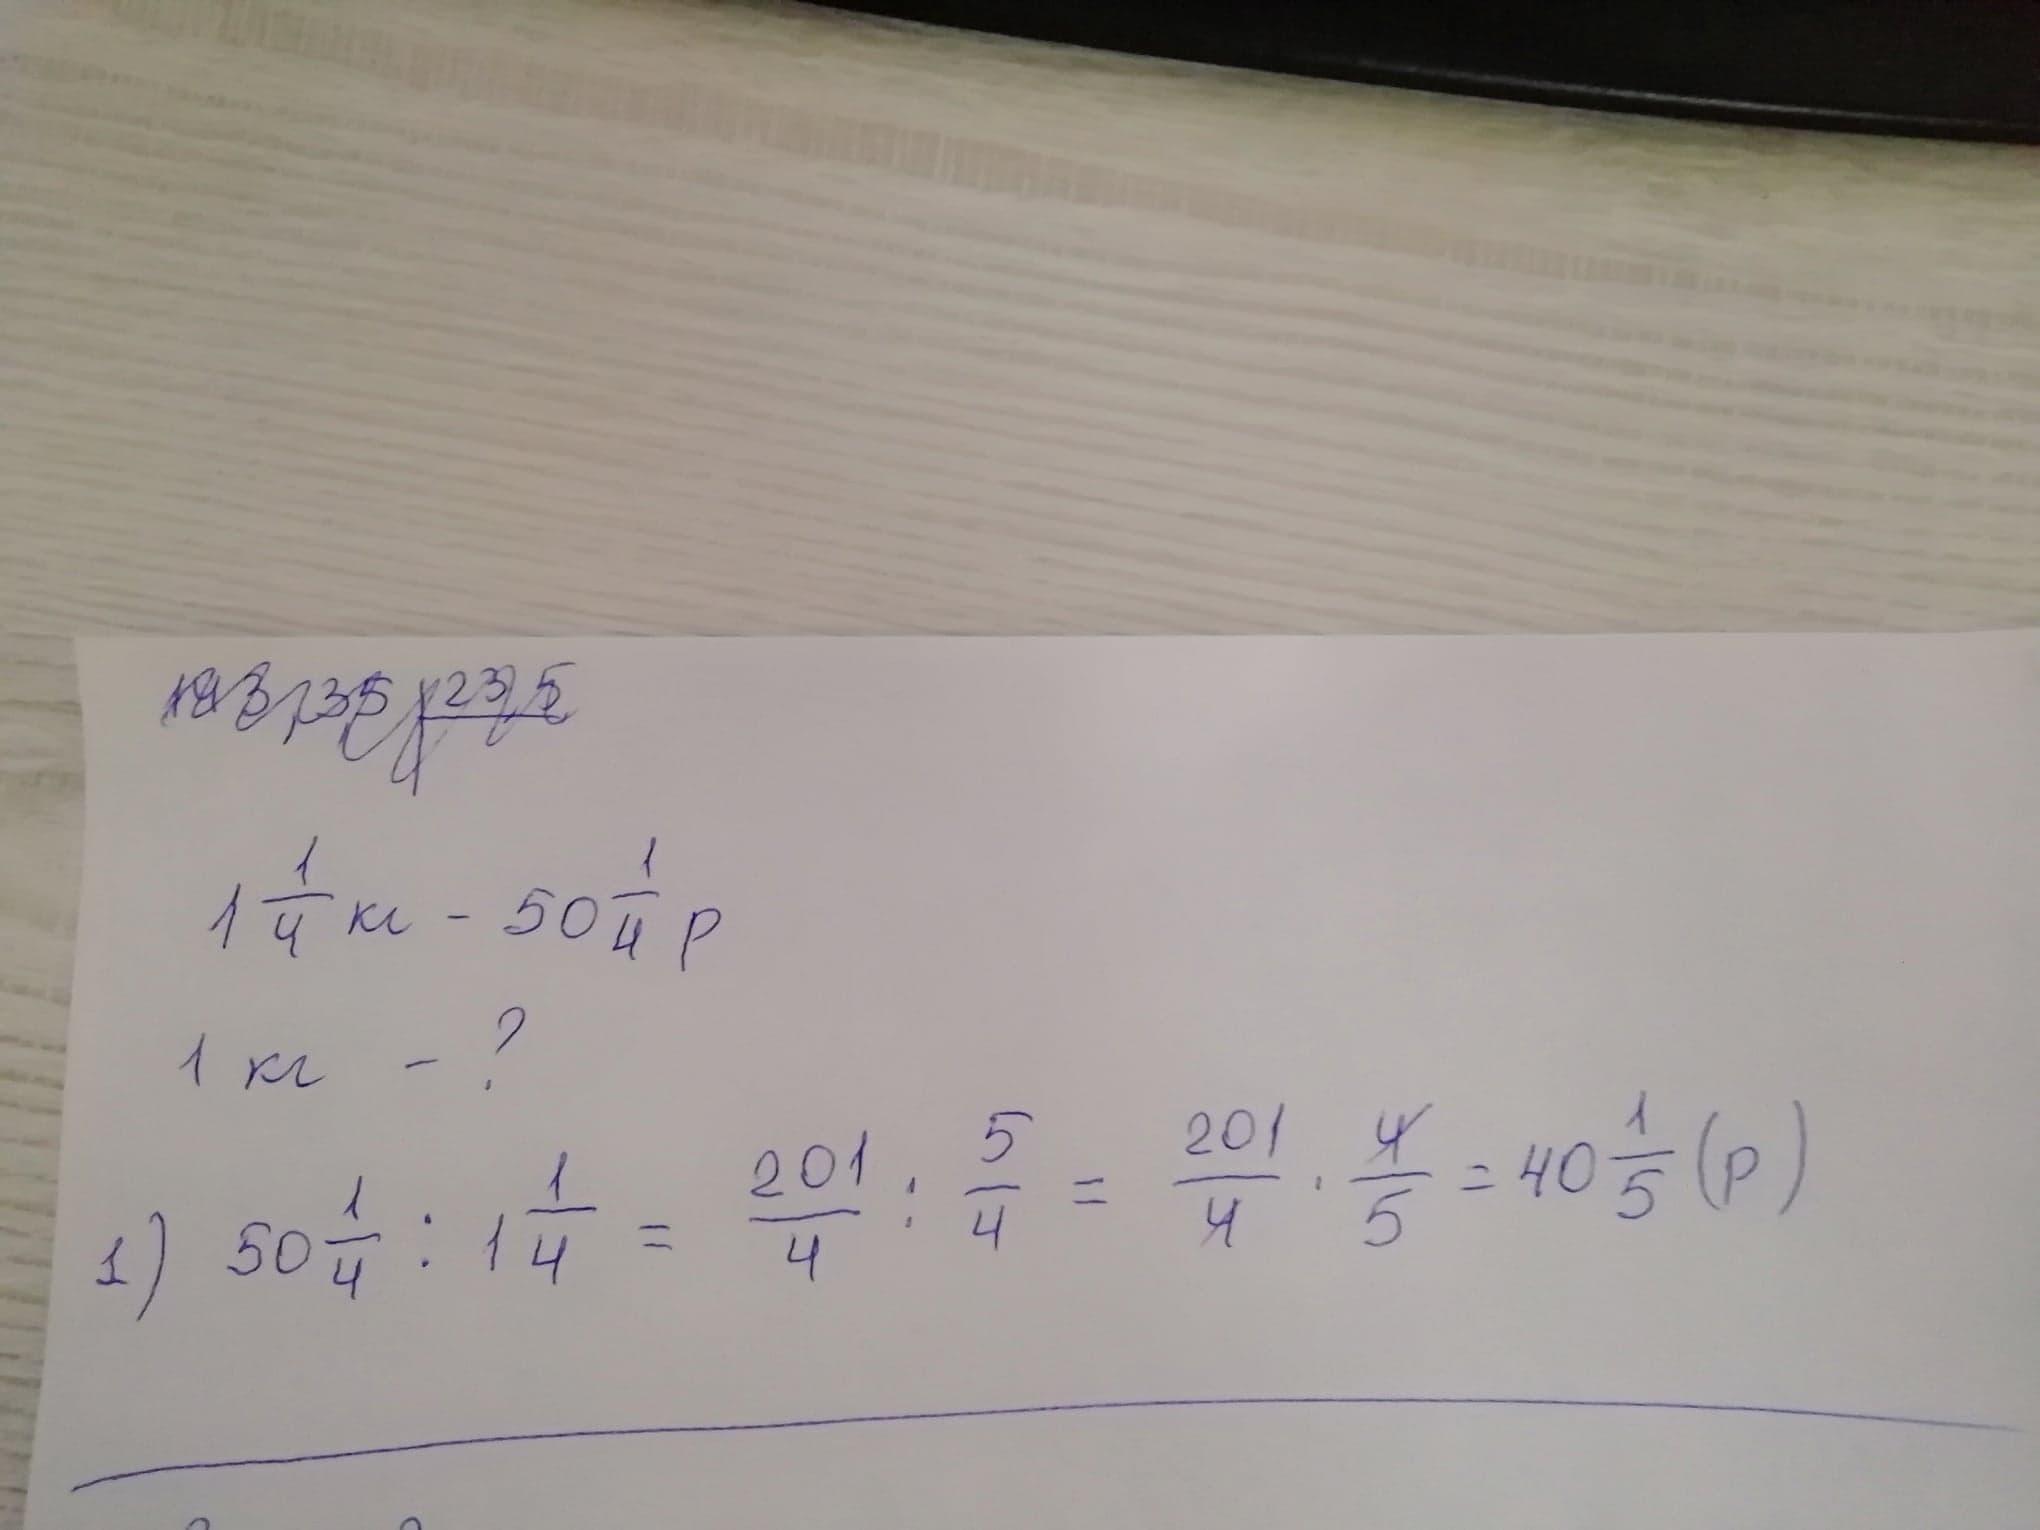 1 1/4 кг - 50 1/4 р
1 кг - ?
1) 50 1/4 : 1 1/4 = 201/4 : 5/4 = 201/4 · 4/5 = 40 1/5 (р)